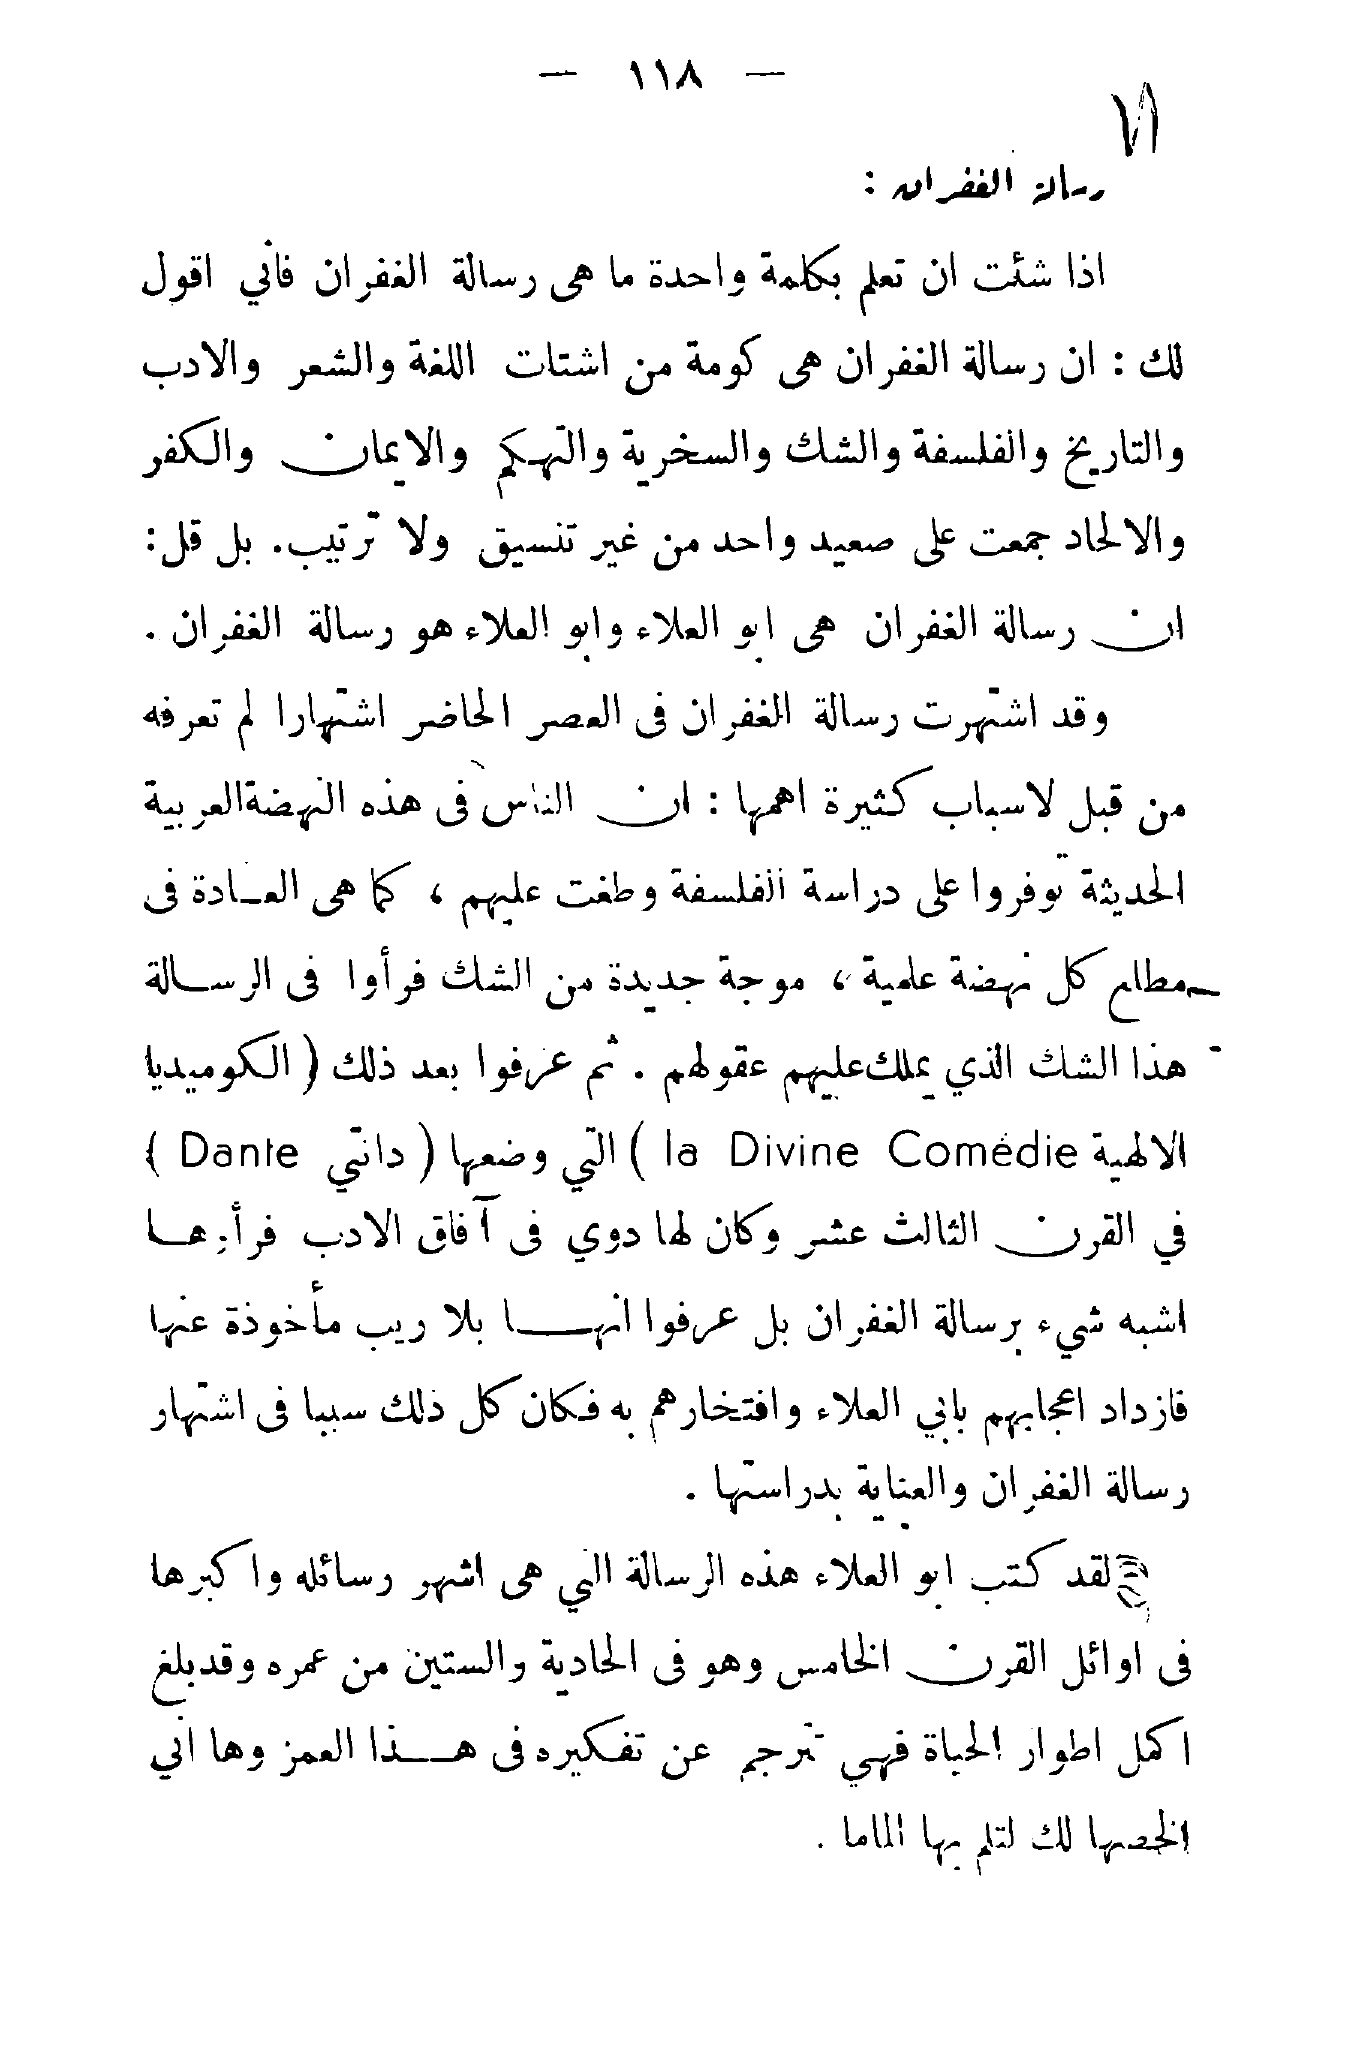 — ١١٨ —
رسالة الغفران :
اذا شئت ان تعلم بكلمة واحدة ما هى رسالة الغفران فاني اقول
لك : ان رسالة الغفران هى كومة من اشتات اللغة والشعر والادب
والتاريخ والفلسفة والشك والسخرية والتهكم والايمان والكفر
والالحاد جمعت على صعيد واحد من غير تنسيق ولا ترتيب. بل قل:
ان رسالة الغفران هى ابو العلاء وابو العلاء هو رسالة الغفران .
وقد اشتهرت رسالة الغفران فى العصر الحاضر اشتهارا لم تعرفه
من قبل لاسباب كثيرة اهمها : ان الناس فى هذه النهضة العربية
الحديثة توفروا على دراسة الفلسفة وطغت عليهم ، كما هى العادة فى
مطلع كل نهضة علمية ، موجة جديدة من الشك فرأوا فى الرسالة
هذا الشك الذي يملك عليهم عقولهم . ثم عرفوا بعد ذلك ( الكوميديا
الالهية la Divine Comédie ) التي وضعها ( دانتي Dante )
في القرن الثالث عشر وكان لها دوي فى آفاق الادب فرأوها
اشبه شيء برسالة الغفران بل عرفوا انها بلا ريب مأخوذة عنها
فازداد اعجابهم بابي العلاء وافتخارهم به فكان كل ذلك سببا فى اشتهار
رسالة الغفران والعناية بدراستها .
لقد كتب ابو العلاء هذه الرسالة التي هى اشهر رسائله واكبرها
فى اوائل القرن الخامس وهو فى الحادية والستين من عمره وقد بلغ
اكمل اطوار الحياة فهي تترجم عن تفكيره فى هذا العمر وها اني
الخصها لك لتلم بها الماما .